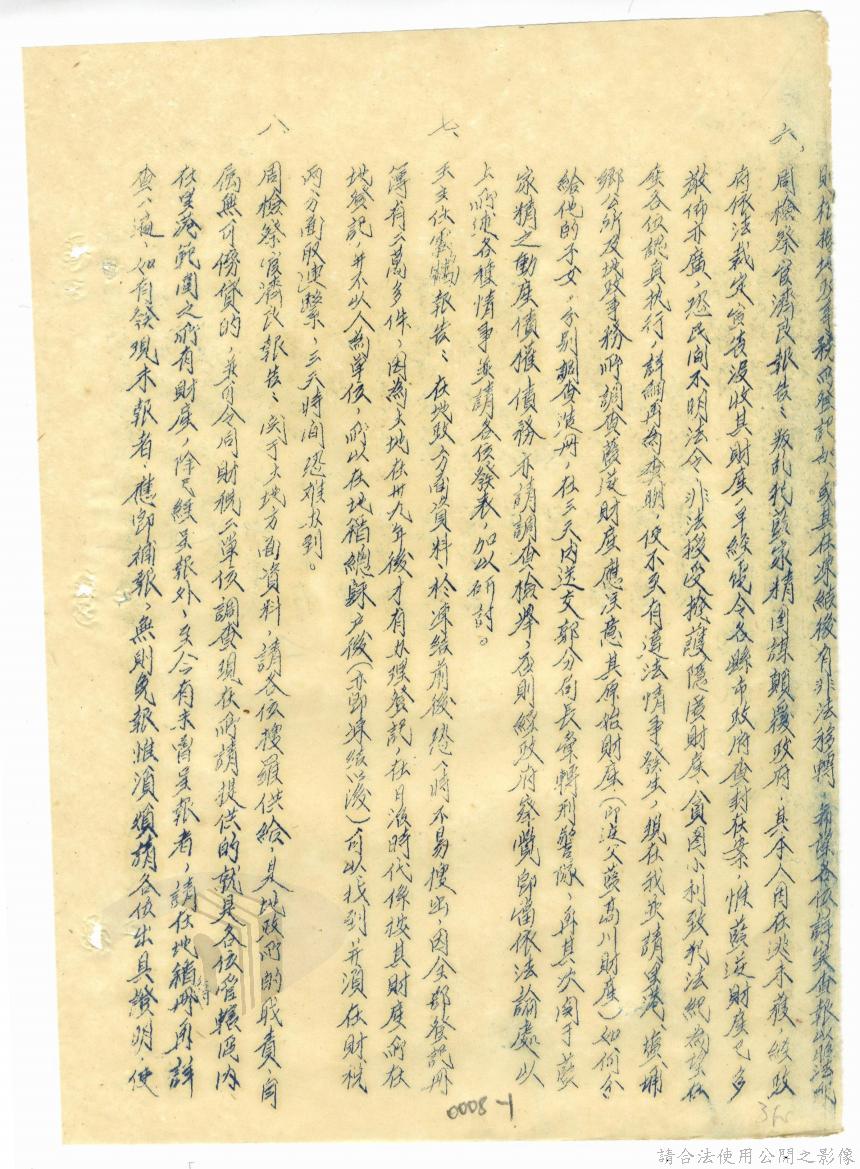 則根據地政事務所登記如或其在凍結後有非法移轉，希談各位詳實查報以照法〇
六、周檢察官濟民報告：叛亂犯藍家精圖謀顛覆政府，其本人因在逃未獲，經政
府依法裁定宣告沒收其財產，早經電令各縣市政府查封在案，惟藍逆財產已多
散佈亦廣，恐民間不明法令，非法授受掩護隱匿財產，貪圖小利致犯法紀為請在
座各位認真執行，詳細再為查明，便不致有違法情事發生，現在我並請里港、鹽埔
鄉公所及地政事務所調查藍逆財產應注意其原始財產（即逆父藍高川財產）如何分
給他的子女，分別調查造冊，在三天內送交郭分局長彙轉刑警隊，再其次関于藍
家精之動產債權債務亦請調查檢舉，否則經政府察覺即當依法論處以
上所述各種情事並請各位發表，加以研討。
七、王主任雲鶴報告：在地政方面資料於凍結前後恐一時不易搜出，因全部登記冊
簿有二萬多件，因為土地在卅九年後才有办理登記，在日治時代係按其財產所在
地登記，并不以人為單位，所以在地籍總歸戶後（亦即凍結以後）可以找到并須在財稅
両方面取連繫，三天時間恐难办到。
八、周檢察官濟民報告：関于土地方面資料，請各位搜羅供給，是地政所的職責，自
属無可傍貸的，其可会同財稅二單位調查現在所請提供的就是各位管轄区內
在里港範圍之所有財產，除已經呈報外，至今有未曾呈報者，請在地籍冊再詳
查一遍，如有發現未報者，應即補報，無則免報惟須煩請各位出具證明，使
簿
0008-1
請合法使用公開之影像